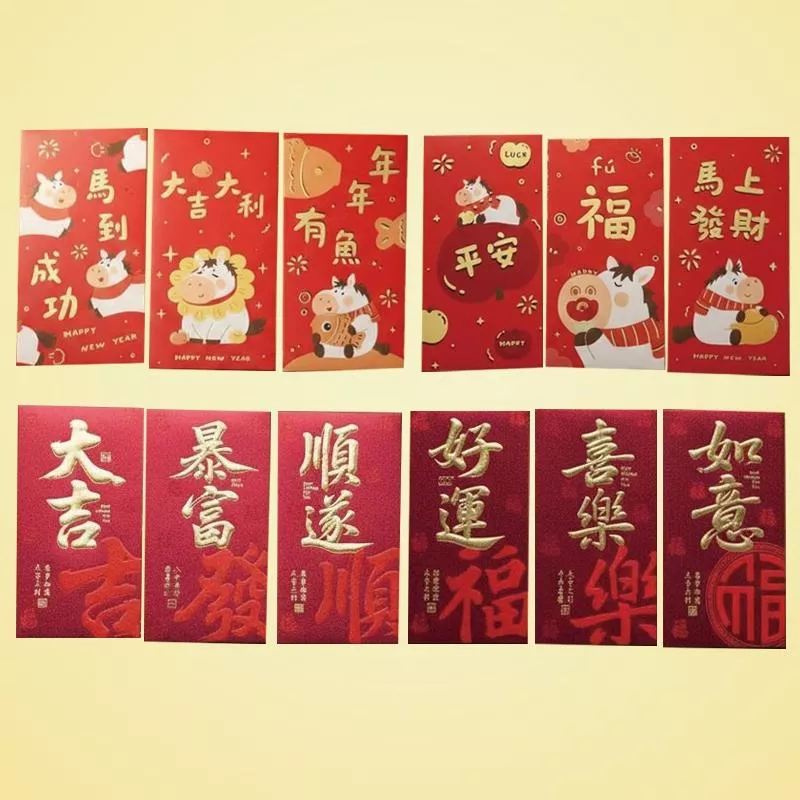 馬到
成功
HAPPY
NEW YEAR
大吉大利
HAPPY NEW YEAR
年年
有魚
LUCK
平安
HAPPY
fú
福
HAPPY
馬上
發財
HAPPY
NEW YEAR
大吉
吉
暴富
發
順遂
順
好運
福
喜樂
樂
如意
福